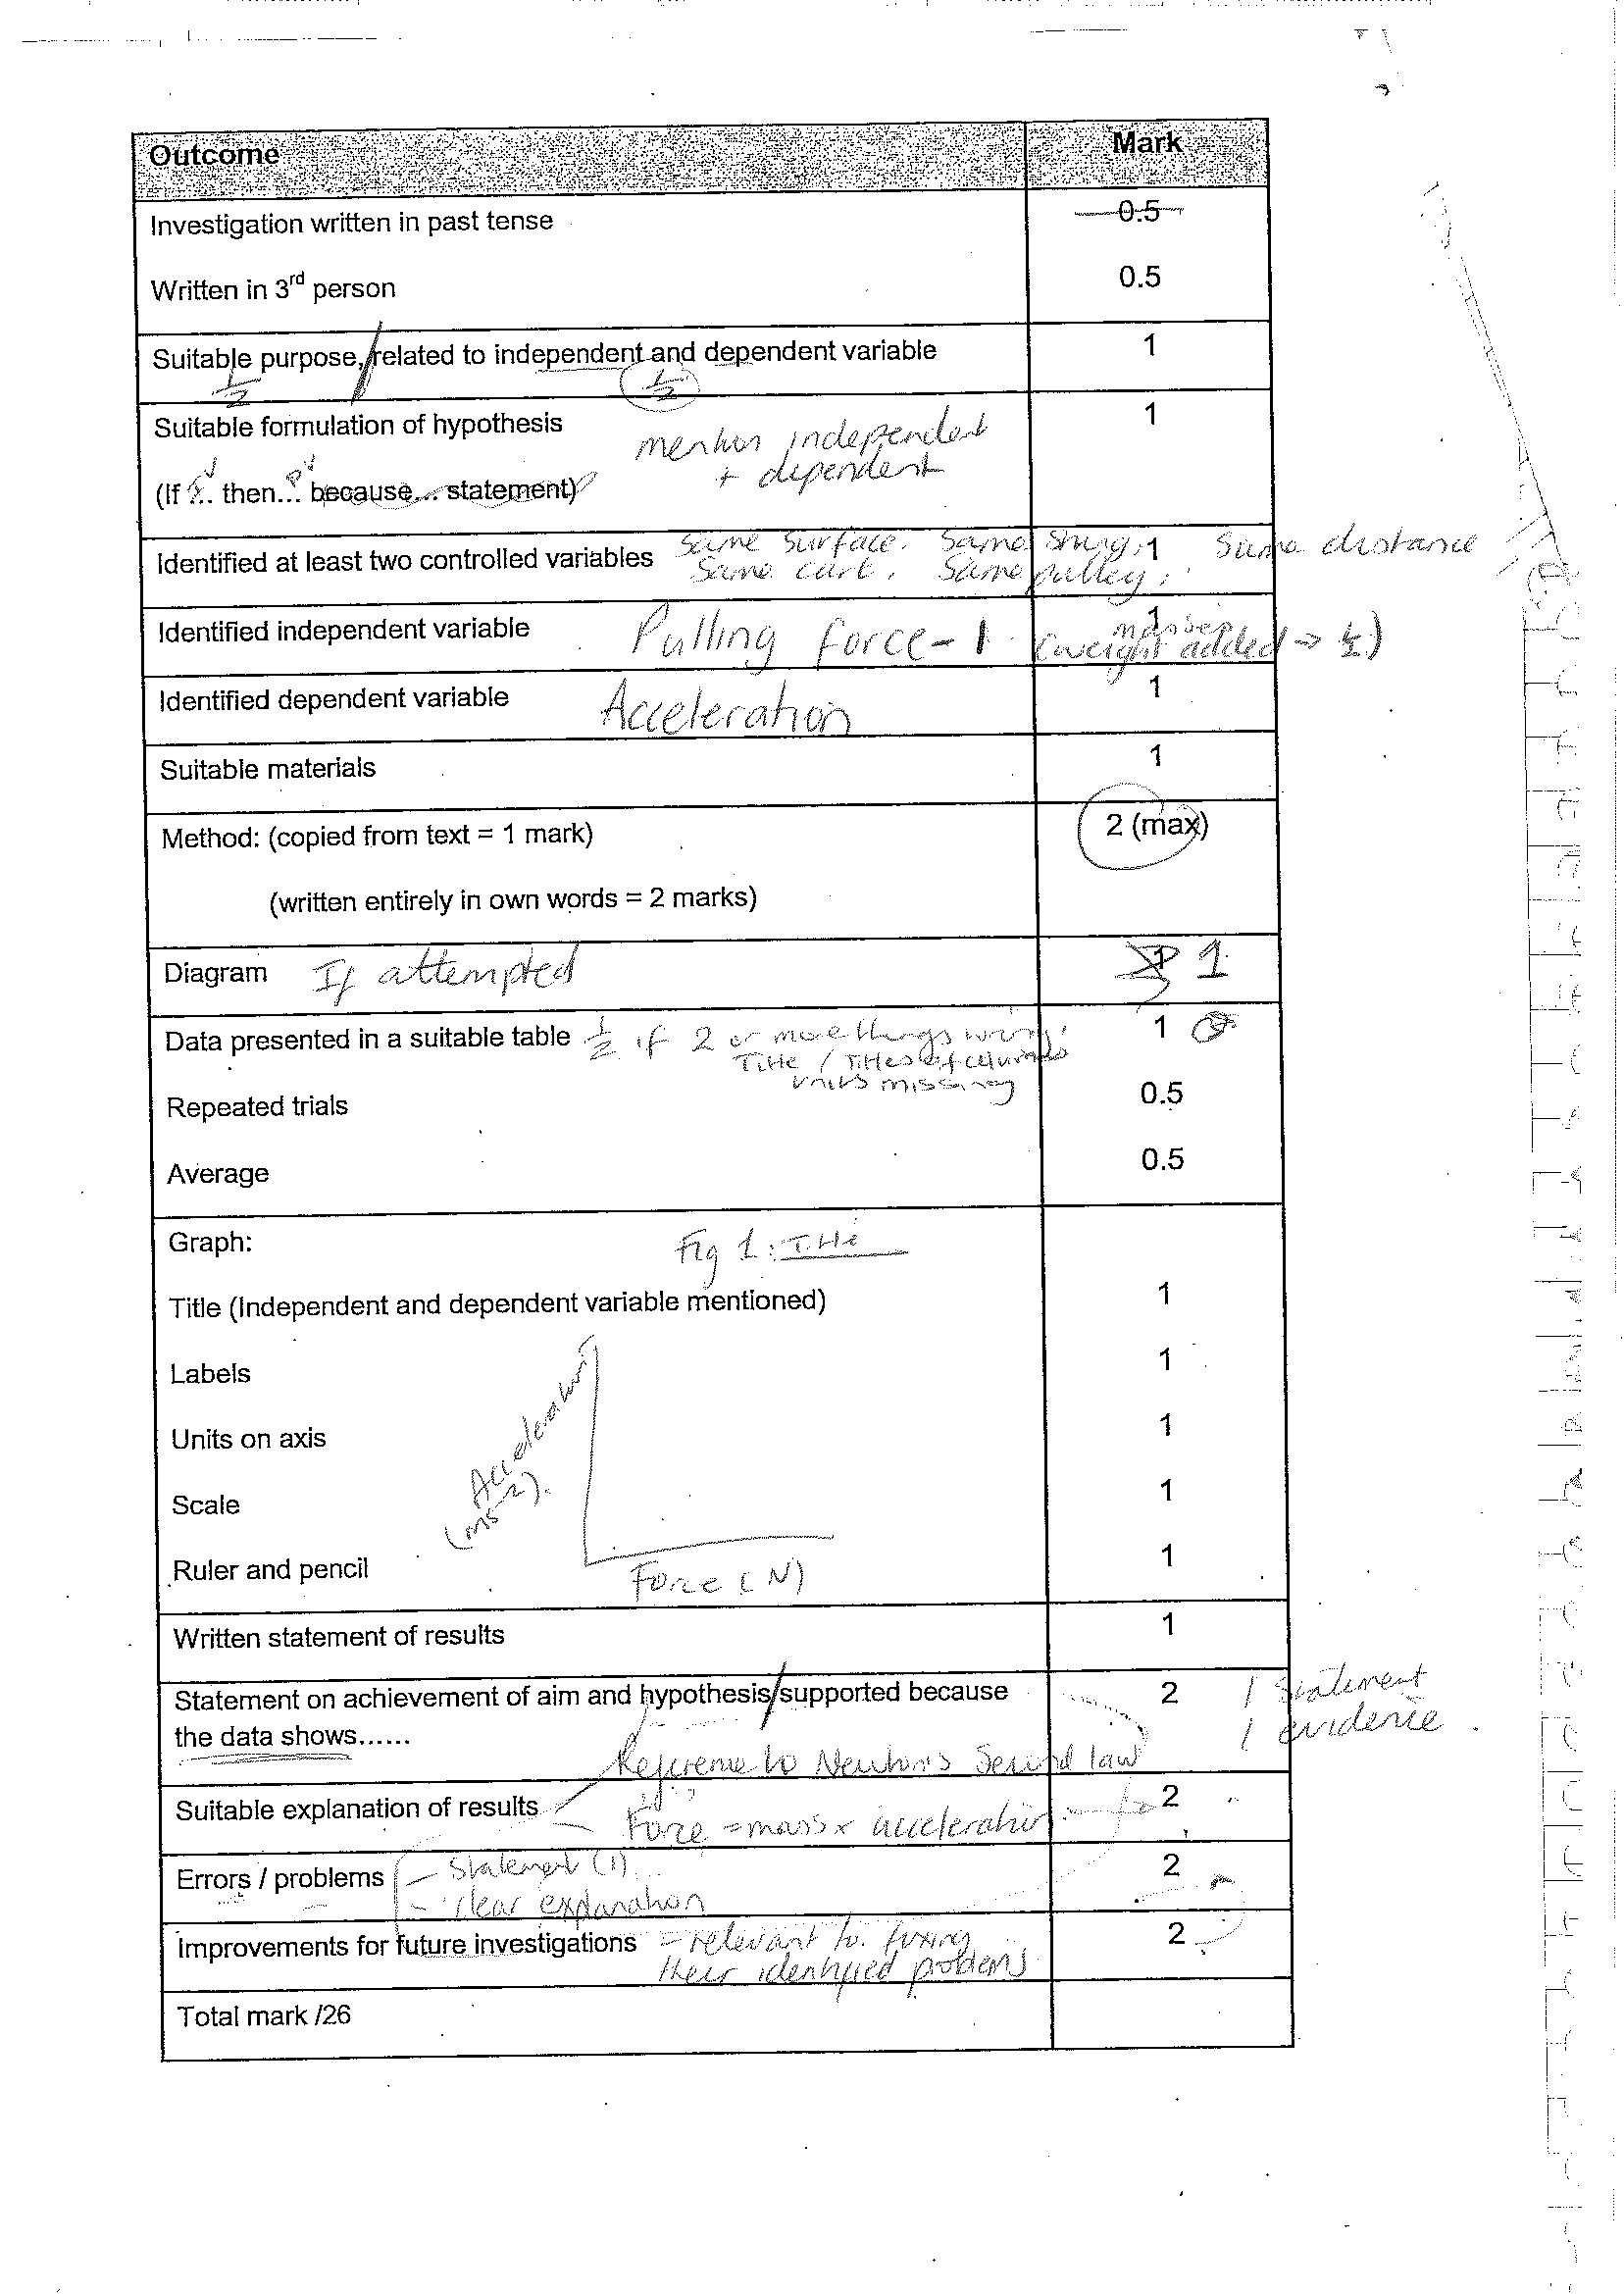 Outcome Mark
Investigation written in past tense 0.5
Written in 3rd person 0.5
Suitable purpose, related to independent and dependent variable 1
1/2 1/2
Suitable formulation of hypothesis 1
mention independent
+ dependent
(If ... then... because... statement)
Identified at least two controlled variables 1
Same surface. Same string. Same distance
Same cart. Same pulley.
Identified independent variable 1
Pulling force - 1 (weight added → 1/2)
masses
Identified dependent variable Acceleration 1
Suitable materials 1
Method: (copied from text = 1 mark) 2 (max)
(written entirely in own words = 2 marks)
Diagram If attempted 1
Data presented in a suitable table 1/2 if 2 or more things wrong 1
Title / Titles of columns
units missing
Repeated trials 0.5
Average 0.5
Graph: Fig 1: Title
Title (Independent and dependent variable mentioned) 1
Labels 1
Units on axis 1
Scale 1
Ruler and pencil 1
Acceleration
(ms-2).
Force (N)
Written statement of results 1
Statement on achievement of aim and hypothesis/supported because 2 1 statement
the data shows...... 1 evidence.
Reference to Newton's Second law
Suitable explanation of results 2
Force = mass x acceleration
Errors / problems - Statement (1) 2
- clear explanation
Improvements for future investigations - relevant to fixing 2
their identified problems
Total mark /26